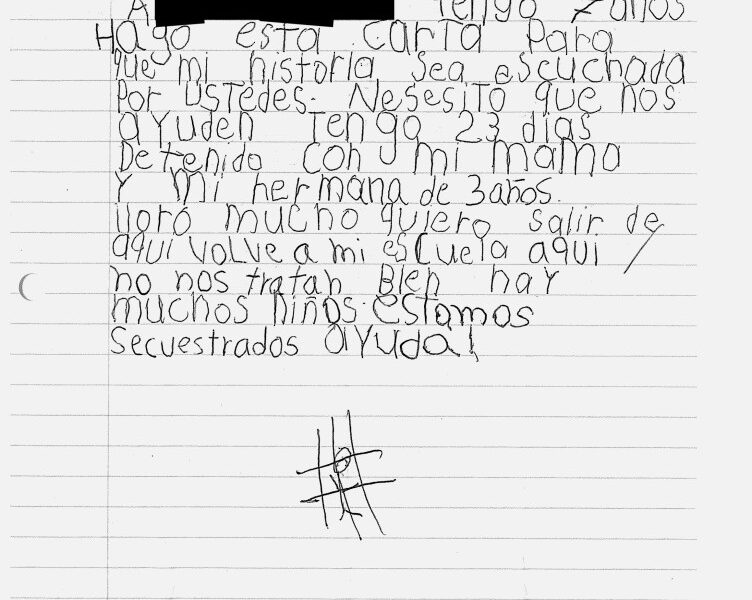 A Tengo 7 años
Hago esta carta para
que mi historia sea escuchada
Por ustedes. Nesesito que nos
ayuden Tengo 23 dias
Detenido con mi mama
Y mi hermana de 3 años.
lloro mucho quiero salir de
aqui volve a mi escuela aqui
no nos tratan Bien hay
muchos niños estamos
secuestrados ayuda!